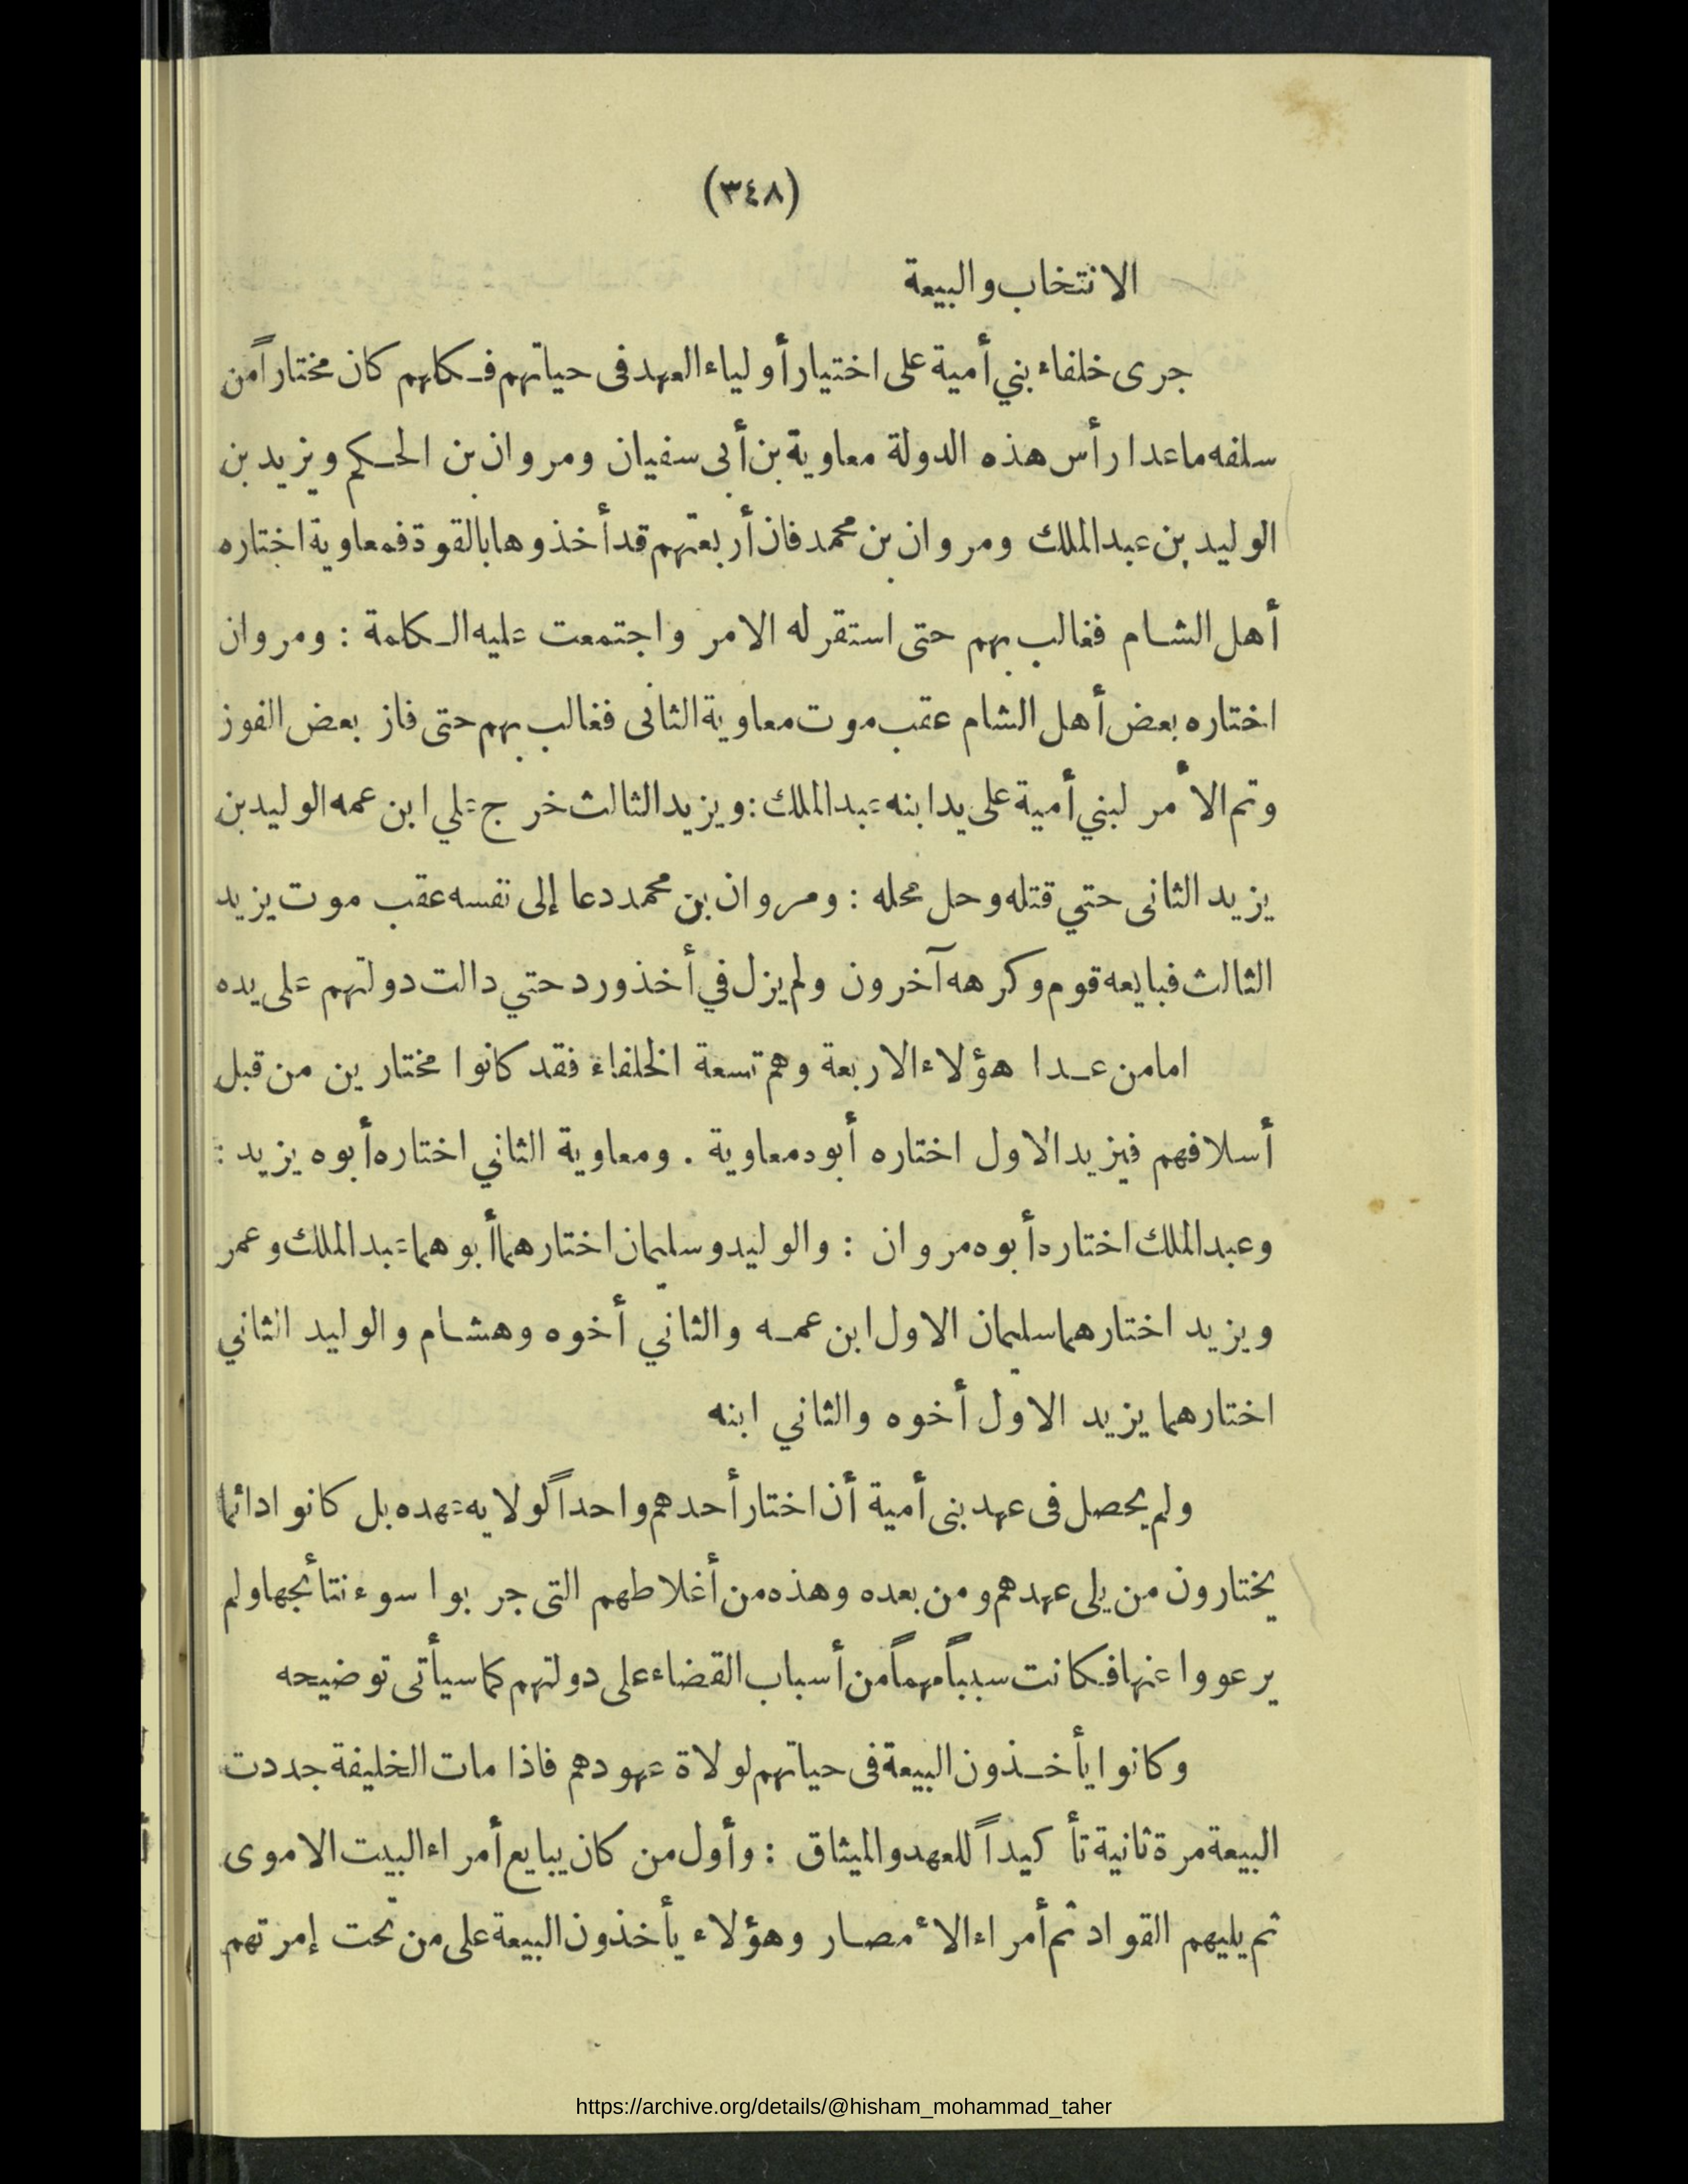 (٣٤٨)
الانتخاب والبيعة
جرى خلفاء بني أمية على اختيار أولياء العهد فى حياتهم فكلهم كان مختاراً من
سلفه ماعدا رأس هذه الدولة معاوية بن أبى سفيان ومروان بن الحكم ويزيد بن
الوليد بن عبد الملك ومروان بن محمد فان أربعتهم قد أخذوها بالقوة فمعاوية اختاره
أهل الشام فغالب بهم حتى استقر له الامر واجتمعت عليه الكلمة : ومروان
اختاره بعض أهل الشام عقب موت معاوية الثانى فغالب بهم حتى فاز بعض الفوز
وتم الأمر لبني أمية على يد ابنه عبد الملك : ويزيد الثالث خرج علي ابن عمه الوليد بن
يزيد الثانى حتي قتله وحل محله : ومروان بن محمد دعا إلى نفسه عقب موت يزيد
الثالث فبايعه قوم وكرهه آخرون ولم يزل في أخذ ورد حتي دالت دولتهم على يده
اما من عدا هؤلاء الاربعة وهم تسعة الخلفاء فقد كانوا مختارين من قبل
أسلافهم فيزيد الاول اختاره أبوه معاوية . ومعاوية الثاني اختاره أبوه يزيد :
وعبد الملك اختاره أبوه مروان : والوليد وسليمان اختارهما أبوهما عبد الملك وعمر
ويزيد اختارهما سليمان الاول ابن عمه والثاني أخوه وهشام والوليد الثاني
اختارهما يزيد الاول أخوه والثاني ابنه
ولم يحصل فى عهد بنى أمية أن اختار أحدهم واحداً لولاية عهده بل كانوا دائما
يختارون من يلى عهدهم ومن بعده وهذه من أغلاطهم التى جربوا سوء نتائجها ولم
يرعووا عنها فكانت سبباً مهماً من أسباب القضاء على دولتهم كما سيأتى توضيحه
وكانوا يأخذون البيعة فى حياتهم لولاة عهودهم فاذا مات الخليفة جددت
البيعة مرة ثانية تأكيداً للعهد والميثاق : وأول من كان يبايع أمراء البيت الاموى
ثم يليهم القواد ثم أمراء الأمصار وهؤلاء يأخذون البيعة على من تحت إمرتهم
https://archive.org/details/@hisham_mohammad_taher